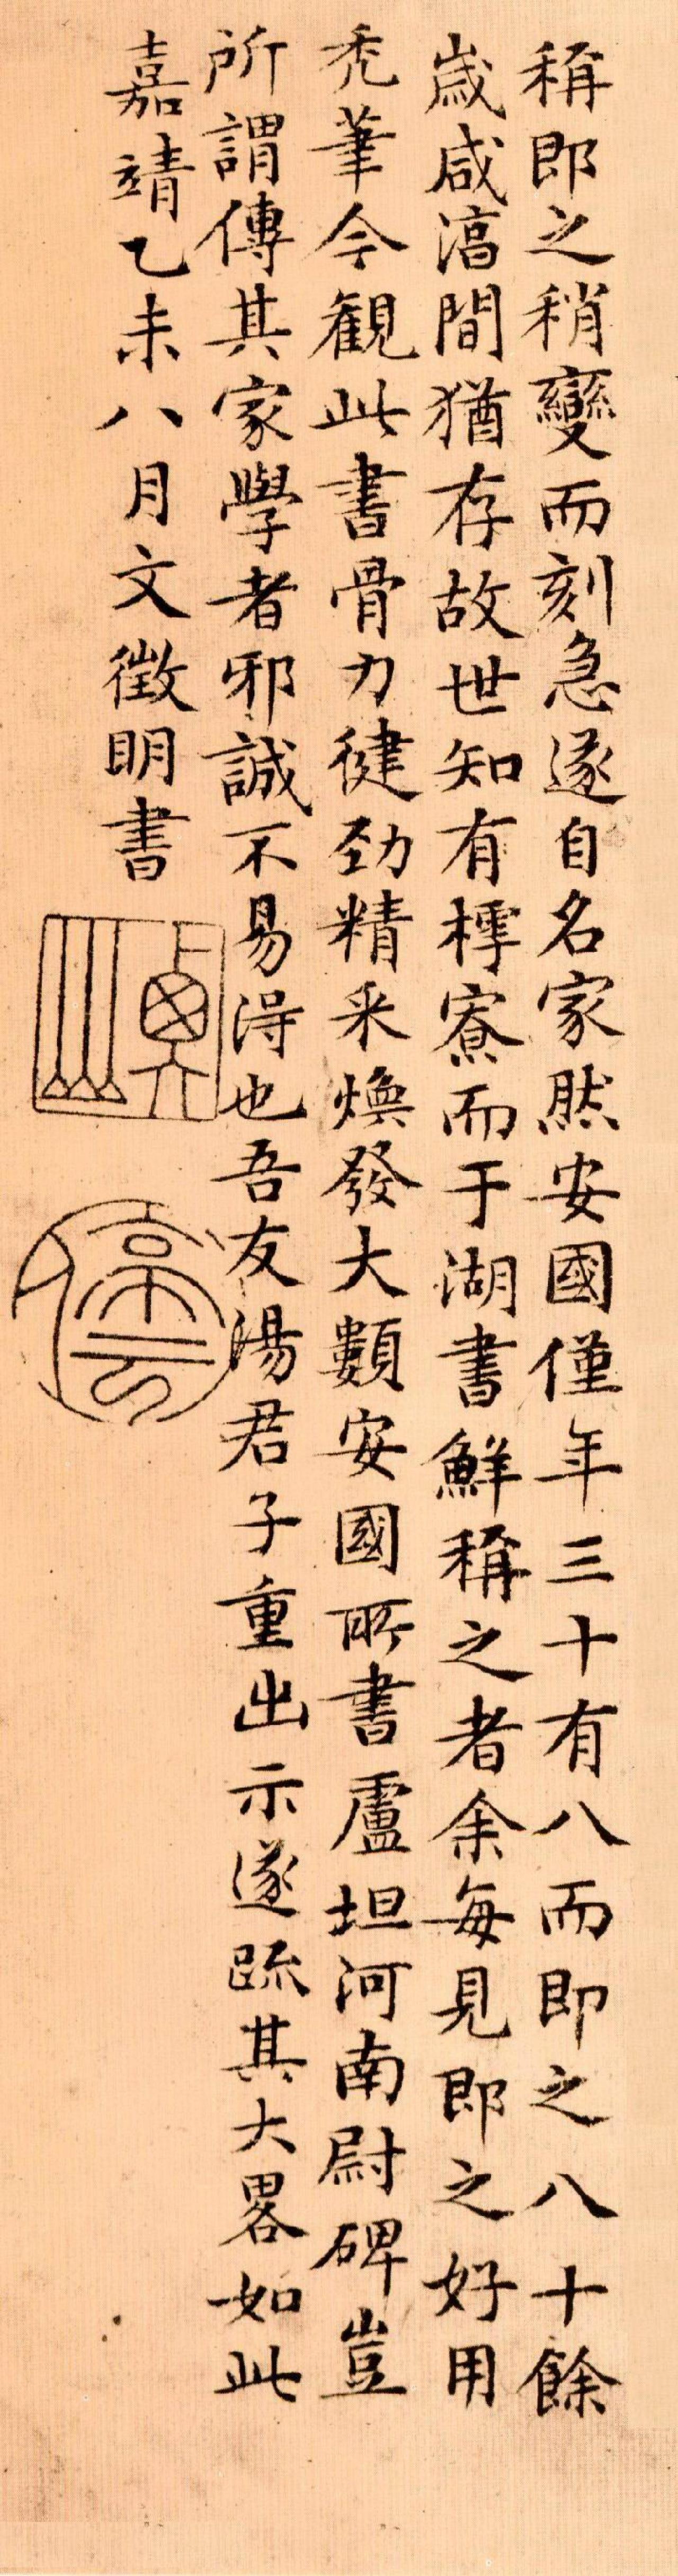 稱即之稍變而刻急遂自名家然安國僅年三十有八而即之八十餘
歲咸淳間猶存故世知有樗寮而于湖書鮮稱之者余每見即之好用
禿筆今觀此書骨力健勁精采煥發大類安國所書盧坦河南尉碑豈
所謂傳其家學者邪誠不易得也吾友湯君子重出示遂疏其大畧如此
嘉靖乙未八月文徵明書
貞山
停雲